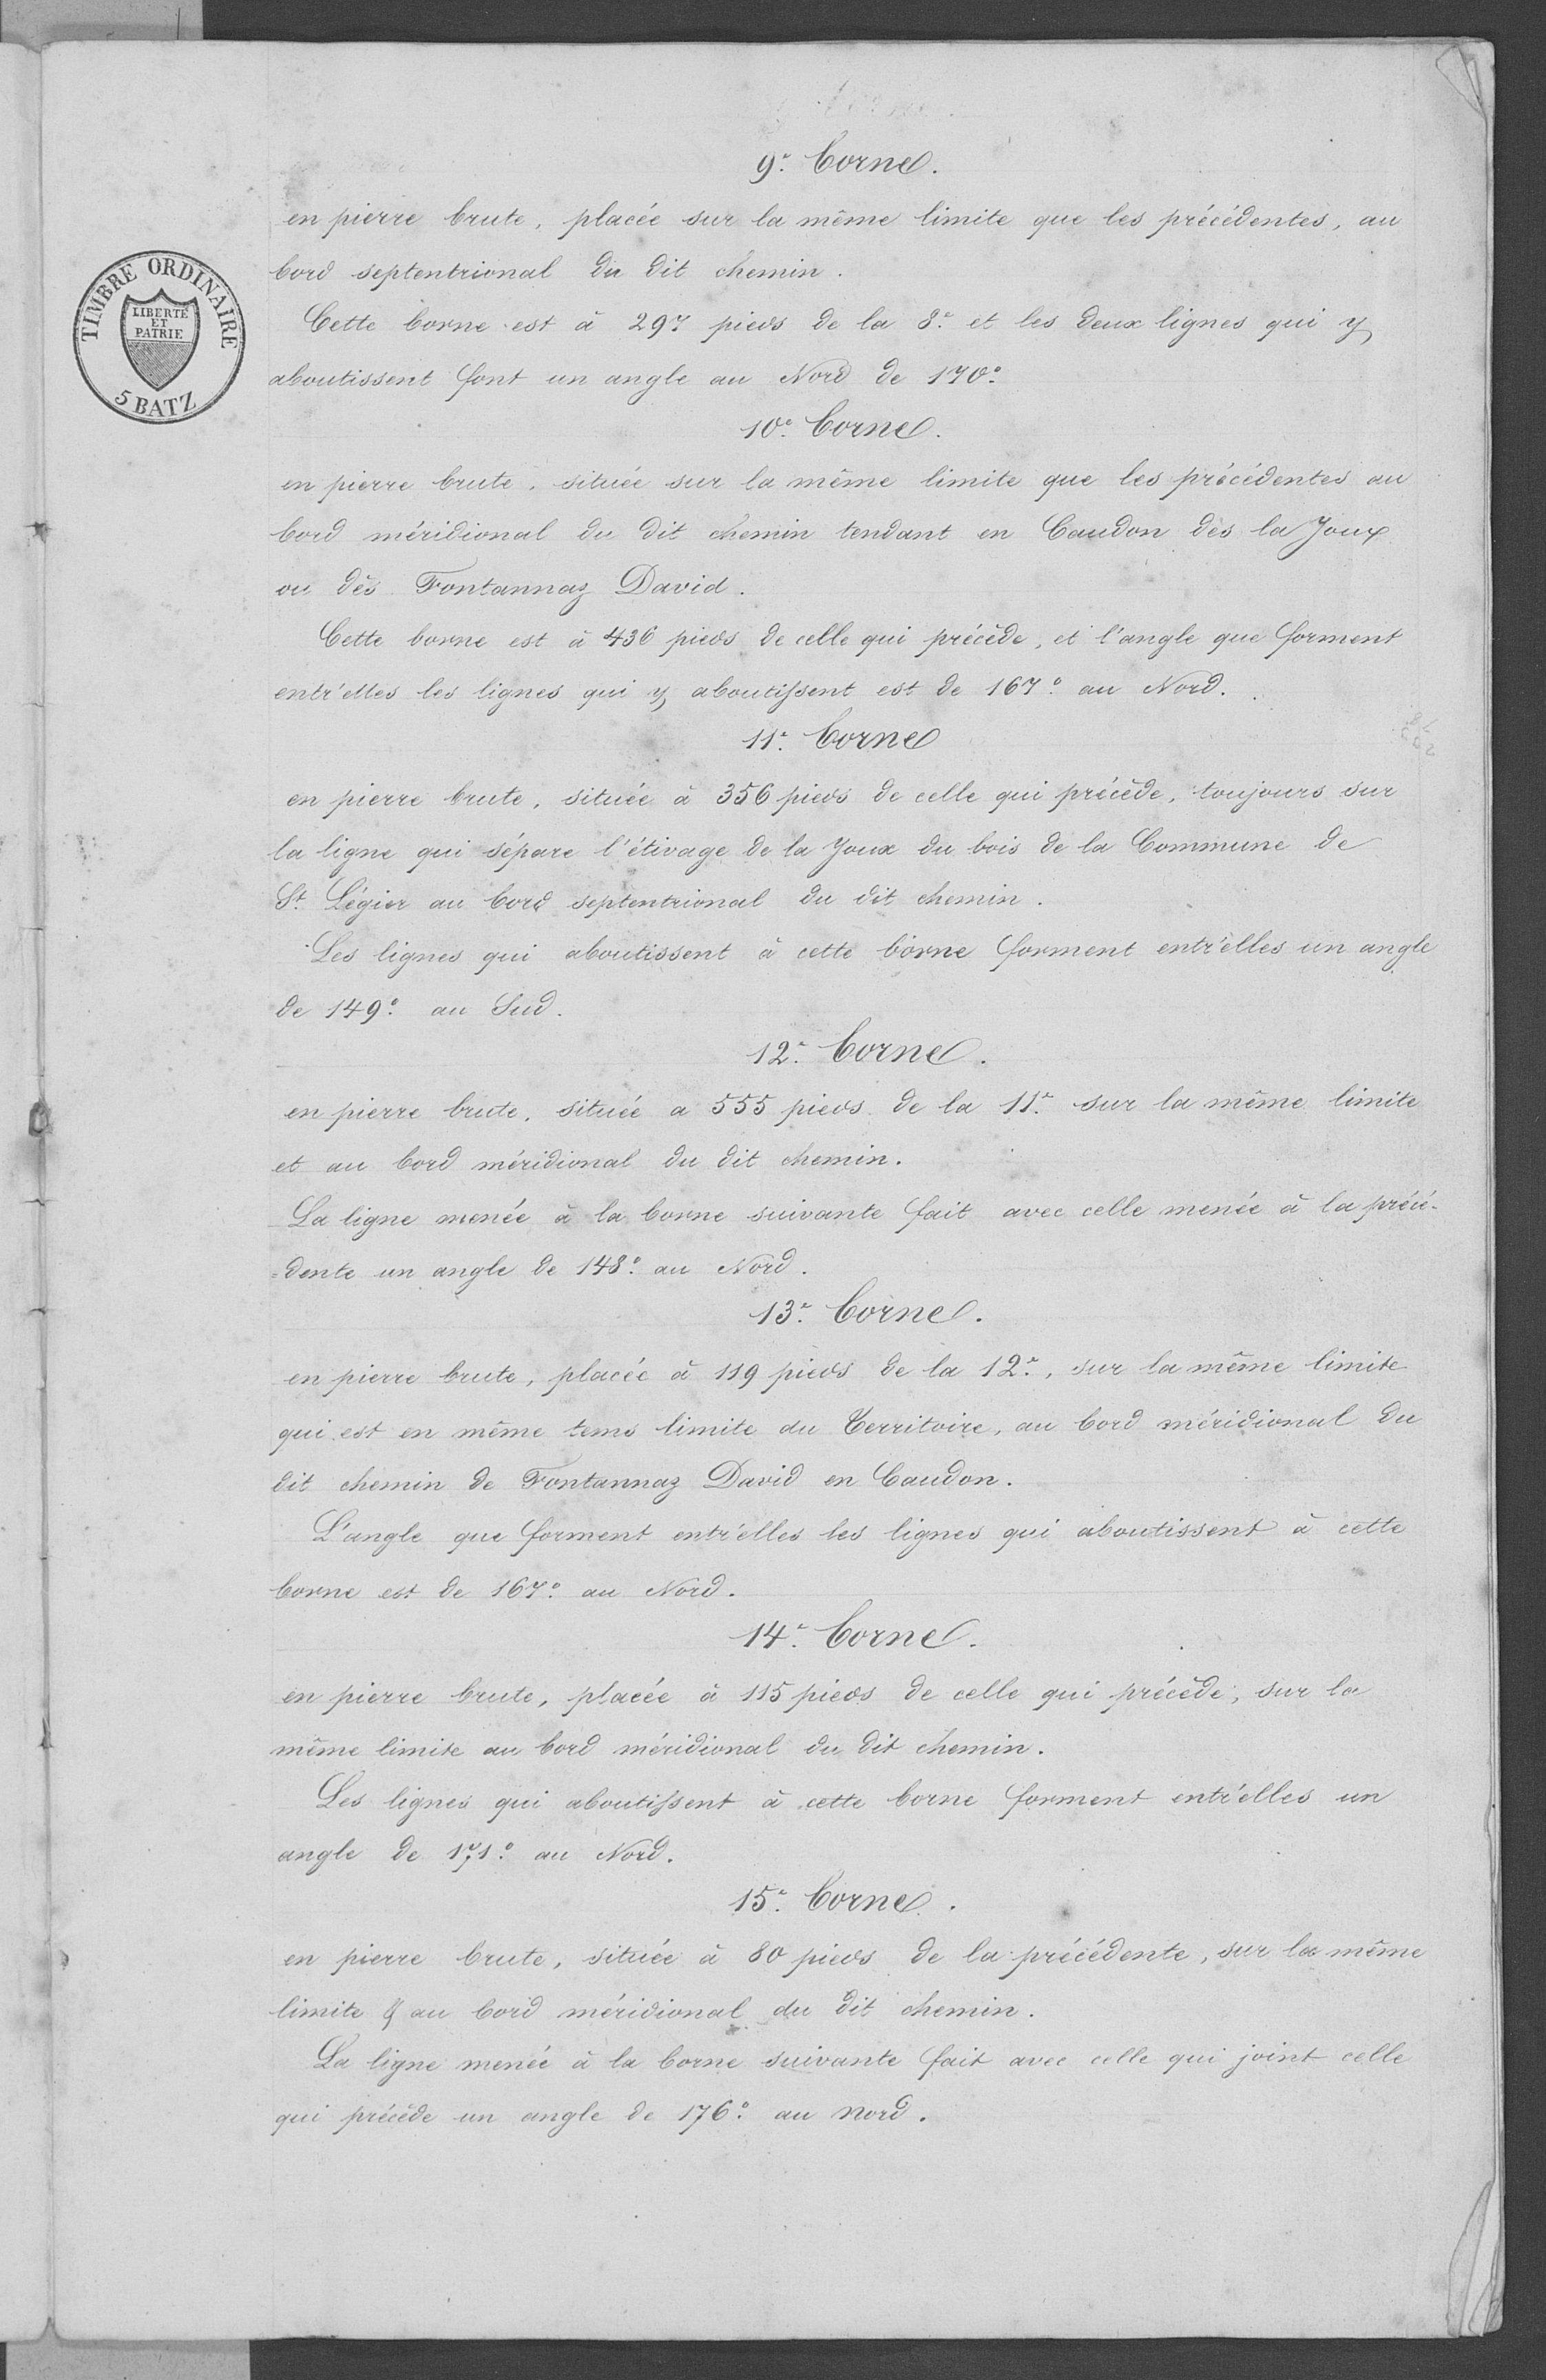 9.e borne.
en pierre brute, placée sur la même limite que les précédentes, au
bord septentrional du dit chemin.
TIMBRE ORDINAIRE
LIBERTÉ
ET
PATRIE
5 BATZ
Cette borne est à 297 pieds de la 8.e et les deux lignes qui y
aboutissent font un angle au Nord de 170°.
10.e borne.
en pierre brute, située sur la même limite que les précédentes au
bord méridional du dit chemin tendant en Caudon dès la Joux
ou dès Fontannaz David.
Cette borne est à 436 pieds de celle qui précède, et l'angle que forment
entr'elles les lignes qui y aboutissent est de 167° au Nord.
11.e borne
en pierre brute, située à 356 pieds de celle qui précède, toujours sur
la ligne qui sépare l'étivage de la Joux du bois de la Commune de
St. Légier au bord septentrional du dit chemin.
Les lignes qui aboutissent à cette borne forment entr'elles un angle
de 149° au Sud.
12.e borne.
en pierre brute, située a 555 pieds de la 11.e sur la même limite
et au bord méridional du dit chemin.
La ligne menée à la borne suivante fait avec celle menée à la précé-
=dente un angle de 148° au Nord.
13.e borne.
en pierre brute, placée à 119 pieds de la 12.e, sur la même limite
qui est en même tems limite du Territoire, au bord méridional du
dit chemin de Fontannaz David en Caudon.
L'angle que forment entr'elles les lignes qui aboutissent à cette
borne est de 167° au Nord.
14.e borne.
en pierre brute, placée à 115 pieds de celle qui précède, sur la
même limite au bord méridional du dit chemin.
Les lignes qui aboutissent à cette borne forment entr'elles un
angle de 171° au Nord.
15.e borne.
en pierre brute, située à 80 pieds de la précédente, sur la même
limite & au bord méridional du dit chemin.
La ligne menée à la borne suivante fait avec celle qui joint celle
qui précède un angle de 176° au nord.